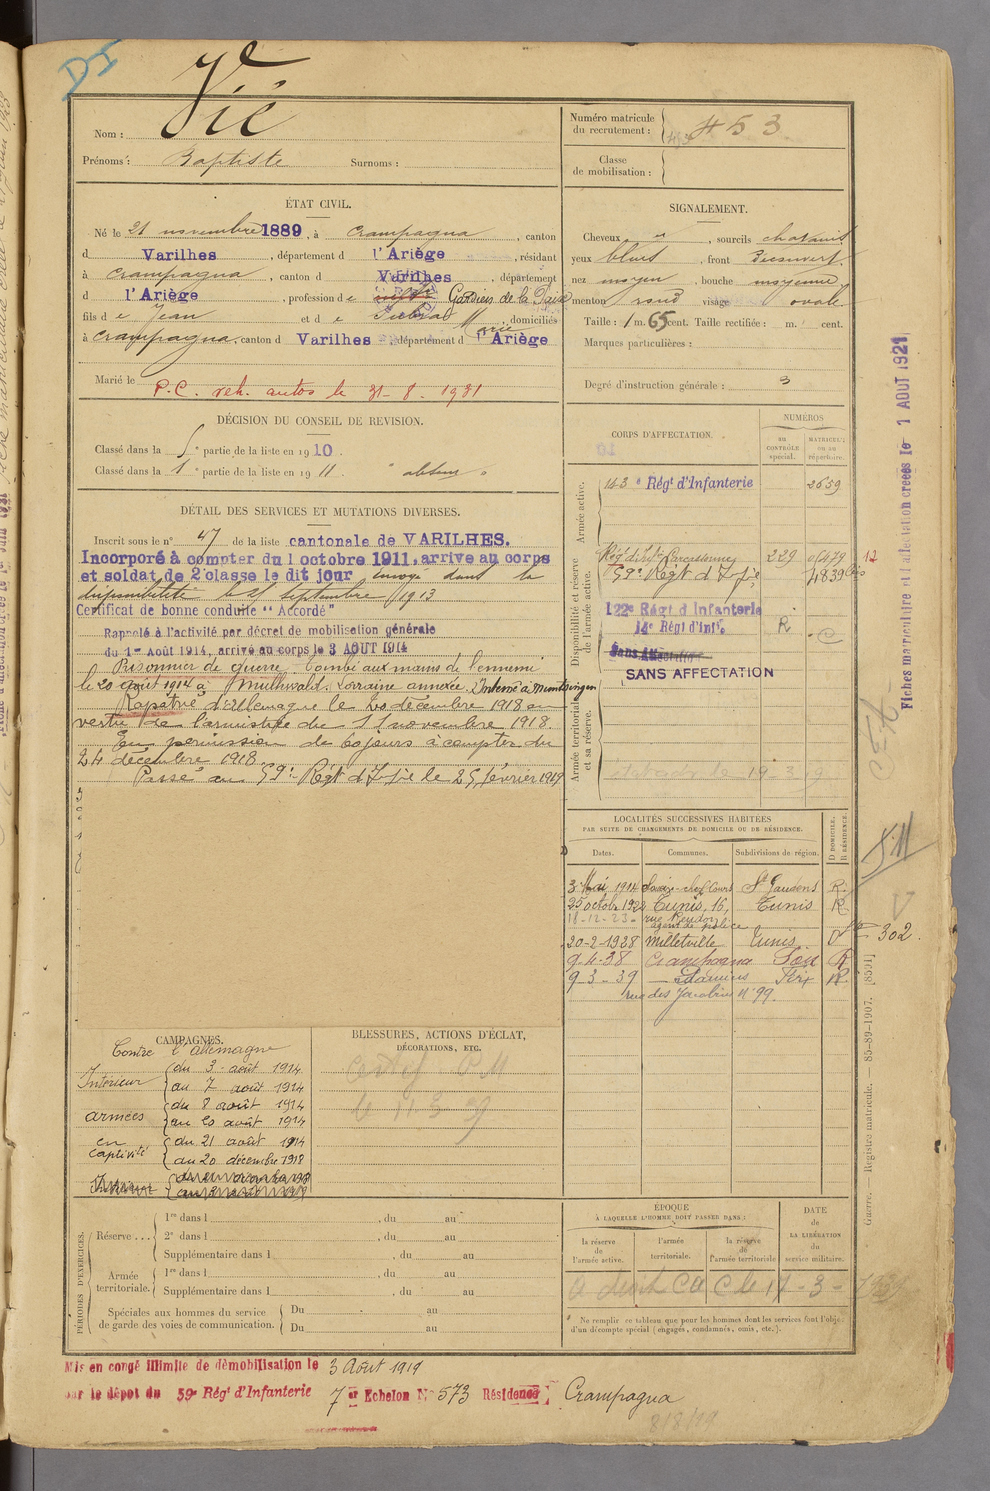 DI
Nom : Vié
Prénoms : Baptiste Surnoms :
Numéro matricule du recrutement : 453
Classe de mobilisation :
ÉTAT CIVIL.
Né le 21 novembre 1889, à Crampagna, canton
d Varilhes, département d l'Ariège, résidant
à Crampagna, canton d Varilhes, département
d l'Ariège, profession de Gardien de la Paix
fils de Jean et de Marie, domiciliés
à Crampagna, canton d Varilhes département d l'Ariège
Marié le
P.C. veh. autos le 31-8-1931
SIGNALEMENT.
Cheveux et, sourcils chatains
yeux bleus, front Découvert
nez moyen, bouche moyenne
menton rond visage ovale
Taille : 1 m. 65 cent. Taille rectifiée : m. cent.
Marques particulières :
Degré d'instruction générale : 3
DÉCISION DU CONSEIL DE REVISION.
Classé dans la 5e partie de la liste en 1910.
Classé dans la 1e partie de la liste en 1911. "absent"
DÉTAIL DES SERVICES ET MUTATIONS DIVERSES.
Inscrit sous le n° 47 de la liste cantonale de VARILHES.
Incorporé à compter du 1 octobre 1911, arrive au corps
et soldat de 2e classe le dit jour envoyé dans la
disponibilité le 25 septembre 1913
Certificat de bonne conduite "Accordé"
Rappelé à l'activité par décret de mobilisation générale
du 1er Août 1914, arrivé au corps le 3 AOUT 1914
Prisonnier de guerre. Tombé aux mains de l'ennemi
le 20 août 1914 à Muthwald. Lorraine annexée. Interné à Muntsingen
Rapatrié d'Allemagne le 20 décembre 1918 en
vertu de l'armistice du 11 novembre 1918.
En permission de 60 jours à compter du
24 décembre 1918.
Passé au 59e Régt d'Infie le 25 février 1919
CORPS D'AFFECTATION.
NUMÉROS
au CONTRÔLE spécial.
MATRICULE ou au répertoire.
Armée active.
143e Régt d'Infanterie 2639
Disponibilité et réserve de l'armée active.
Régt d'Infie Carcassonne 229 05479 12
59e Régt d'Infie 4839
122e Régt d'Infanterie
14e Régt d'Infie R C
Sans Affectation
SANS AFFECTATION
Armée territoriale et sa réserve.
19-3-9
LOCALITÉS SUCCESSIVES HABITÉES
PAR SUITE DE CHANGEMENTS DE DOMICILE OU DE RÉSIDENCE.
Dates. Communes. Subdivisions de région. D DOMICILE. R RÉSIDENCE.
3 Mai 1914 St Gaudens R.
25 octobre 1922 Tunis, 16, Tunis R.
18-12-23 - rue
agent de police
20-2-1928 Milletville Tunis D
9-4-38 Crampagna Foix R
9-3-39 Pamiers Foix R.
rue des Jacobins n° 99.
302.
CAMPAGNES.
Contre l'allemagne
Intérieur { du 3 août 1914
au 7 août 1914
armées { du 8 août 1914
au 20 août 1914
en captivité { du 21 août 1914
au 20 décembre 1918
BLESSURES, ACTIONS D'ÉCLAT,
DÉCORATIONS, ETC.
PÉRIODES D'EXERCICES.
Réserve ... 1re dans l , du au
2e dans l , du au
Supplémentaire dans l , du au
Armée territoriale. 1re dans l , du au
Supplémentaire dans l , du au
Spéciales aux hommes du service de garde des voies de communication. Du au
Du au
ÉPOQUE
À LAQUELLE L'HOMME DOIT PASSER DANS :
la réserve de l'armée active.
l'armée territoriale.
la réserve de l'armée territoriale
DATE de LA LIBÉRATION du service militaire.
* Ne remplir ce tableau que pour les hommes dont les services font l'objet
d'un décompte spécial (engagés, condamnés, omis, etc.).
Mis en congé illimité de démobilisation le 3 Août 1919
par le dépôt du 59e Régt d'Infanterie 7er Echelon N° 573 Résidence Crampagna
8/8/19
Fiches matriculaire et d'affectation créées le 1 AOUT 1921
Guerre. — Registre matricule. — 85-89-1907. [8391]